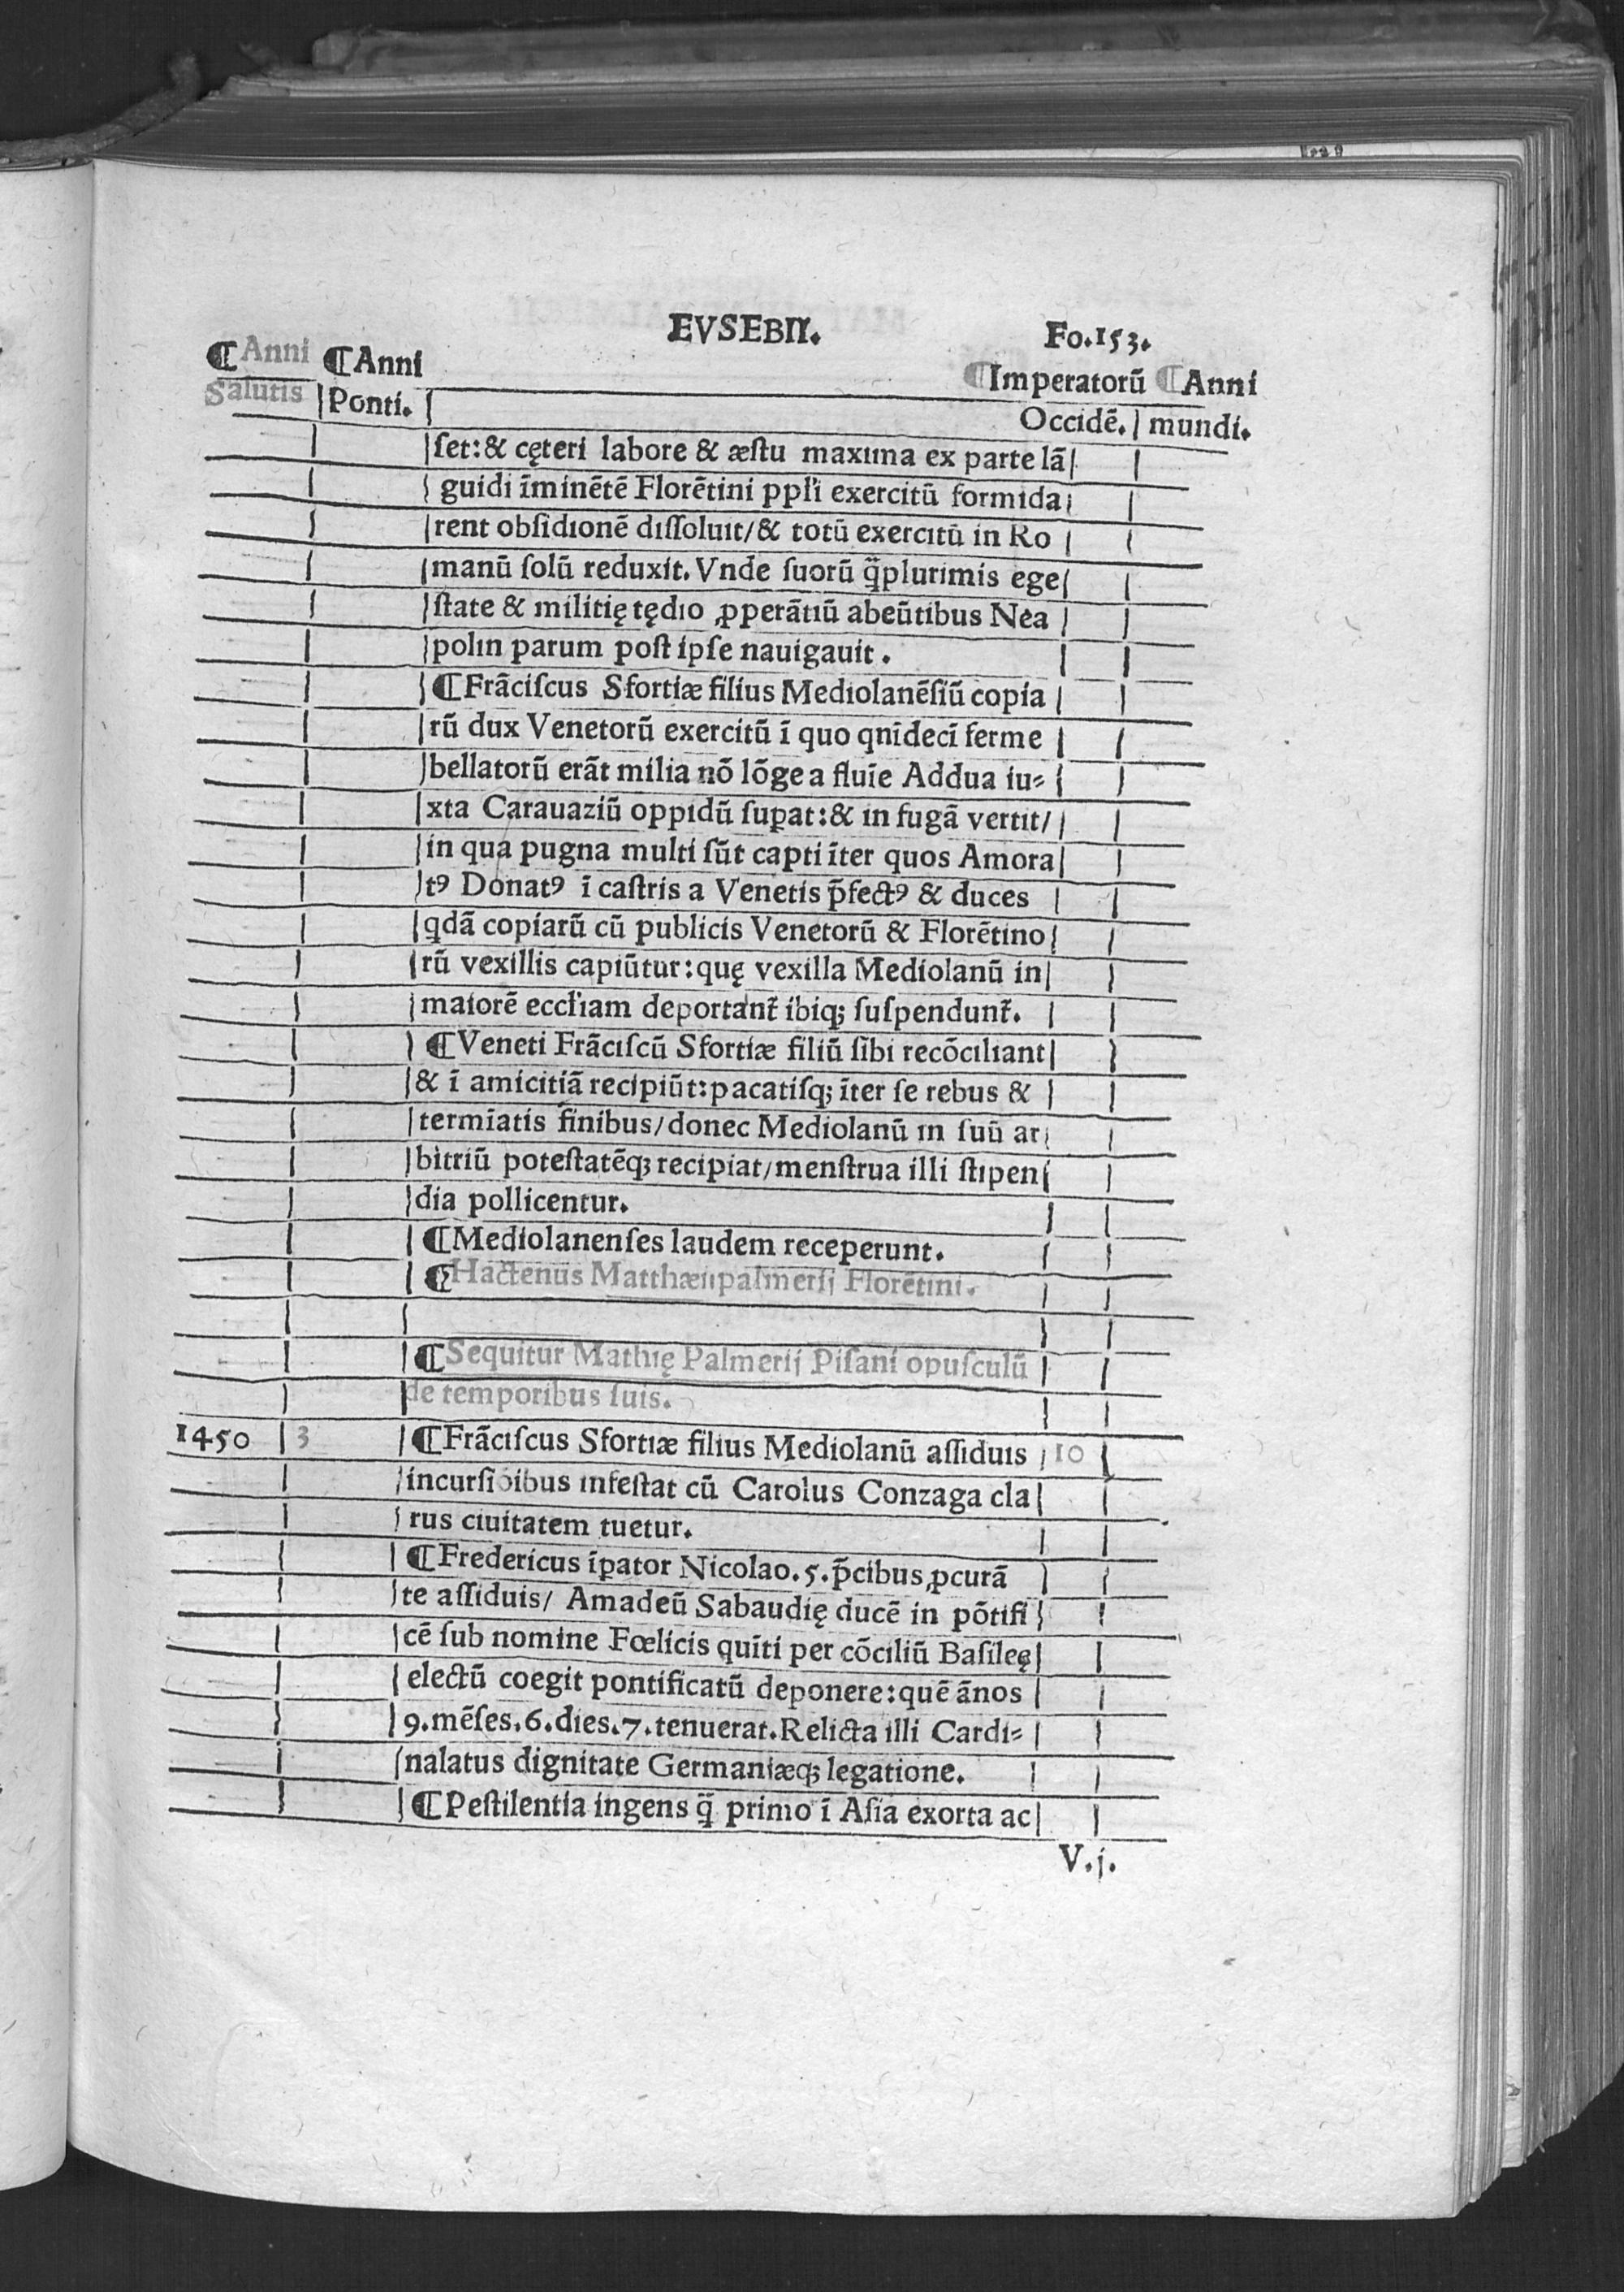 EVSEBII. Fo.153.
¶Anni ¶Anni ¶Imperatorū ¶Anni
Salutis Ponti. Occidē. mundi.
ſet:& cęteri labore & æſtu maxima ex parte lā
guidi īminētē Florētini ppl'i exercitū formida
rent obſidionē diſſoluit/& totū exercitū in Ro
manū ſolū reduxit. Vnde ſuorū q̄plurimis ege
ſtate & militię tędio ꝓperātiū abeūtibus Nea
polin parum poſt ipſe nauigauit.
¶Frāciſcus Sfortiæ filius Mediolanēſiū copia
rū dux Venetorū exercitū ī quo qnīdecī ferme
bellatorū erāt milia nō lōge a fluīe Addua iu⸗
xta Carauaziū oppidū ſuꝑat:& in fugā vertit/
in qua pugna multi ſūt capti īter quos Amora
tꝰ Donatꝰ ī caſtris a Venetis p̄fectꝰ & duces
qdā copiarū cū publicis Venetorū & Florētino
rū vexillis capiūtur:quę vexilla Mediolanū in
maiorē eccl'iam deportant᷑ ibiqꝫ ſuſpendunt᷑.
¶Veneti Frāciſcū Sfortiæ filiū ſibi recōciliant
& ī amicitiā recipiūt:pacatiſqꝫ īter ſe rebus &
termīatis finibus/donec Mediolanū in ſuū ar
bitriū poteſtatēqꝫ recipiat/menſtrua illi ſtipen
dia pollicentur.
¶Mediolanenſes laudem receperunt.
¶Hactenus Matthæiipalmerij Florētini.
¶Sequitur Mathię Palmerij Piſani opuſculū
de temporibus ſuis.
1450 3 ¶Frāciſcus Sfortiæ filius Mediolanū aſſiduis 10
incurſiōibus infeſtat cū Carolus Conzaga cla
rus ciuitatem tuetur.
¶Fredericus īꝑator Nicolao.5.p̄cibus ꝓcurā
te aſſiduis/ Amadeū Sabaudię ducē in pōtifi
cē ſub nomine Fœlicis quīti per cōciliū Baſileę
electū coegit pontificatū deponere:quē ānos
9.mēſes.6.dies.7.tenuerat.Relicta illi Cardi⸗
nalatus dignitate Germaniæqꝫ legatione.
¶Peſtilentia ingens q̄ primo ī Aſia exorta ac
V.j.